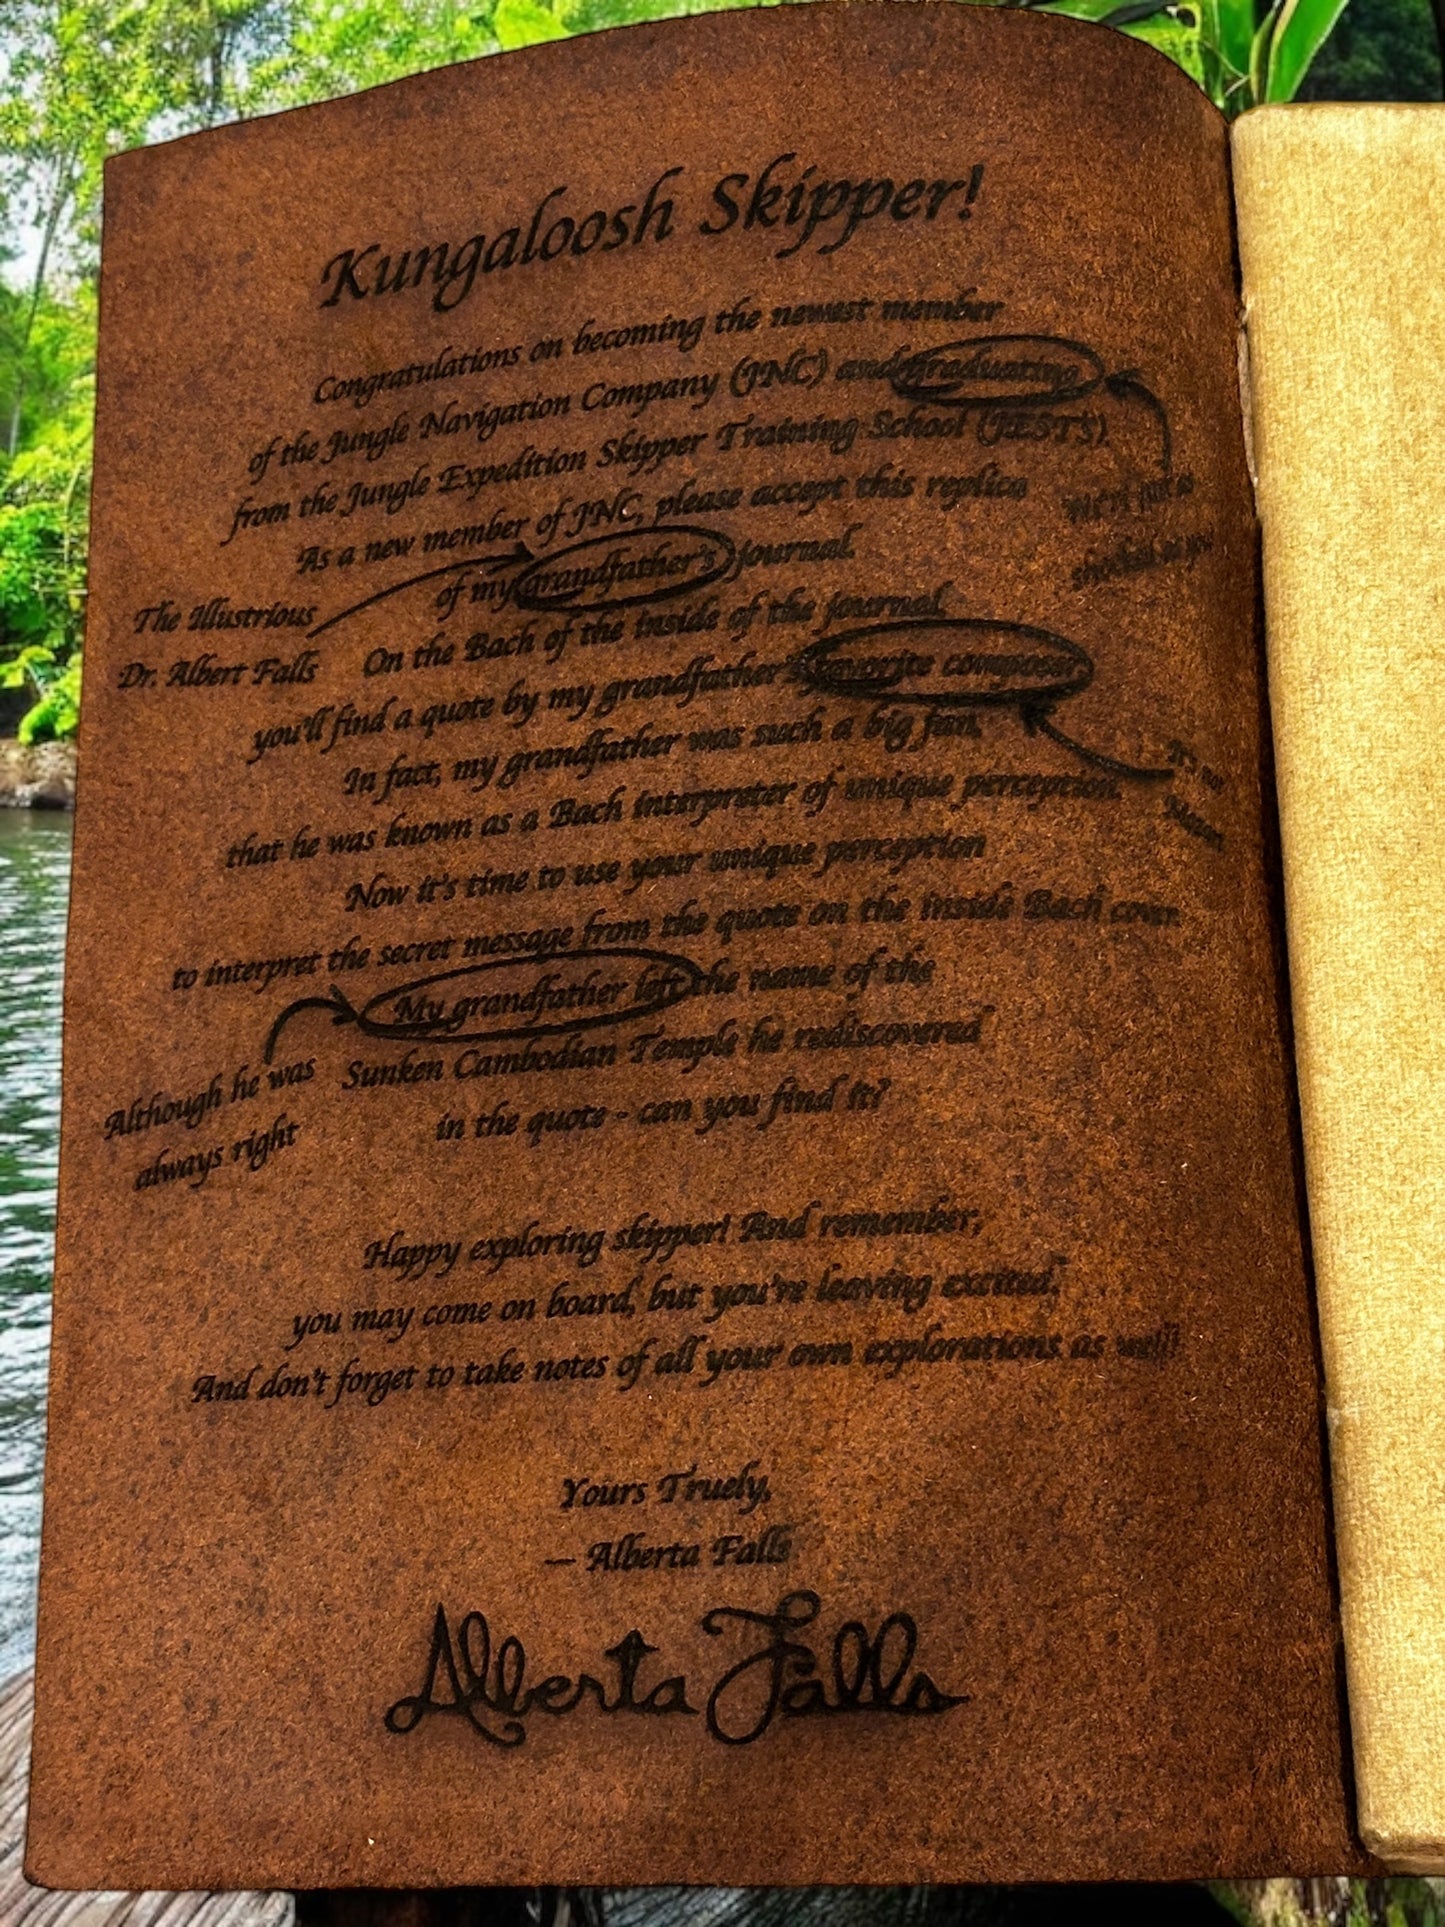 Kungaloosh Skipper!
Congratulations on becoming the newest member
of the Jungle Navigation Company (JNC) and graduating
from the Jungle Expedition Skipper Training School (JESTS).
We're just as
shocked as you
As a new member of JNC, please accept this replica
of my grandfather's journal.
The Illustrious
Dr. Albert Falls
On the Bach of the inside of the journal
you'll find a quote by my grandfather's favorite composer
It's not
Mozart
In fact, my grandfather was such a big fan,
that he was known as a Bach interpreter of unique perception.
Now it's time to use your unique perception
to interpret the secret message from the quote on the inside Bach cover.
My grandfather left the name of the
Although he was
always right
Sunken Cambodian Temple he rediscovered
in the quote - can you find it?
Happy exploring skipper! And remember,
you may come on board, but you're leaving excited.
And don't forget to take notes of all your own explorations as well!
Yours Truely,
— Alberta Falls
Alberta Falls